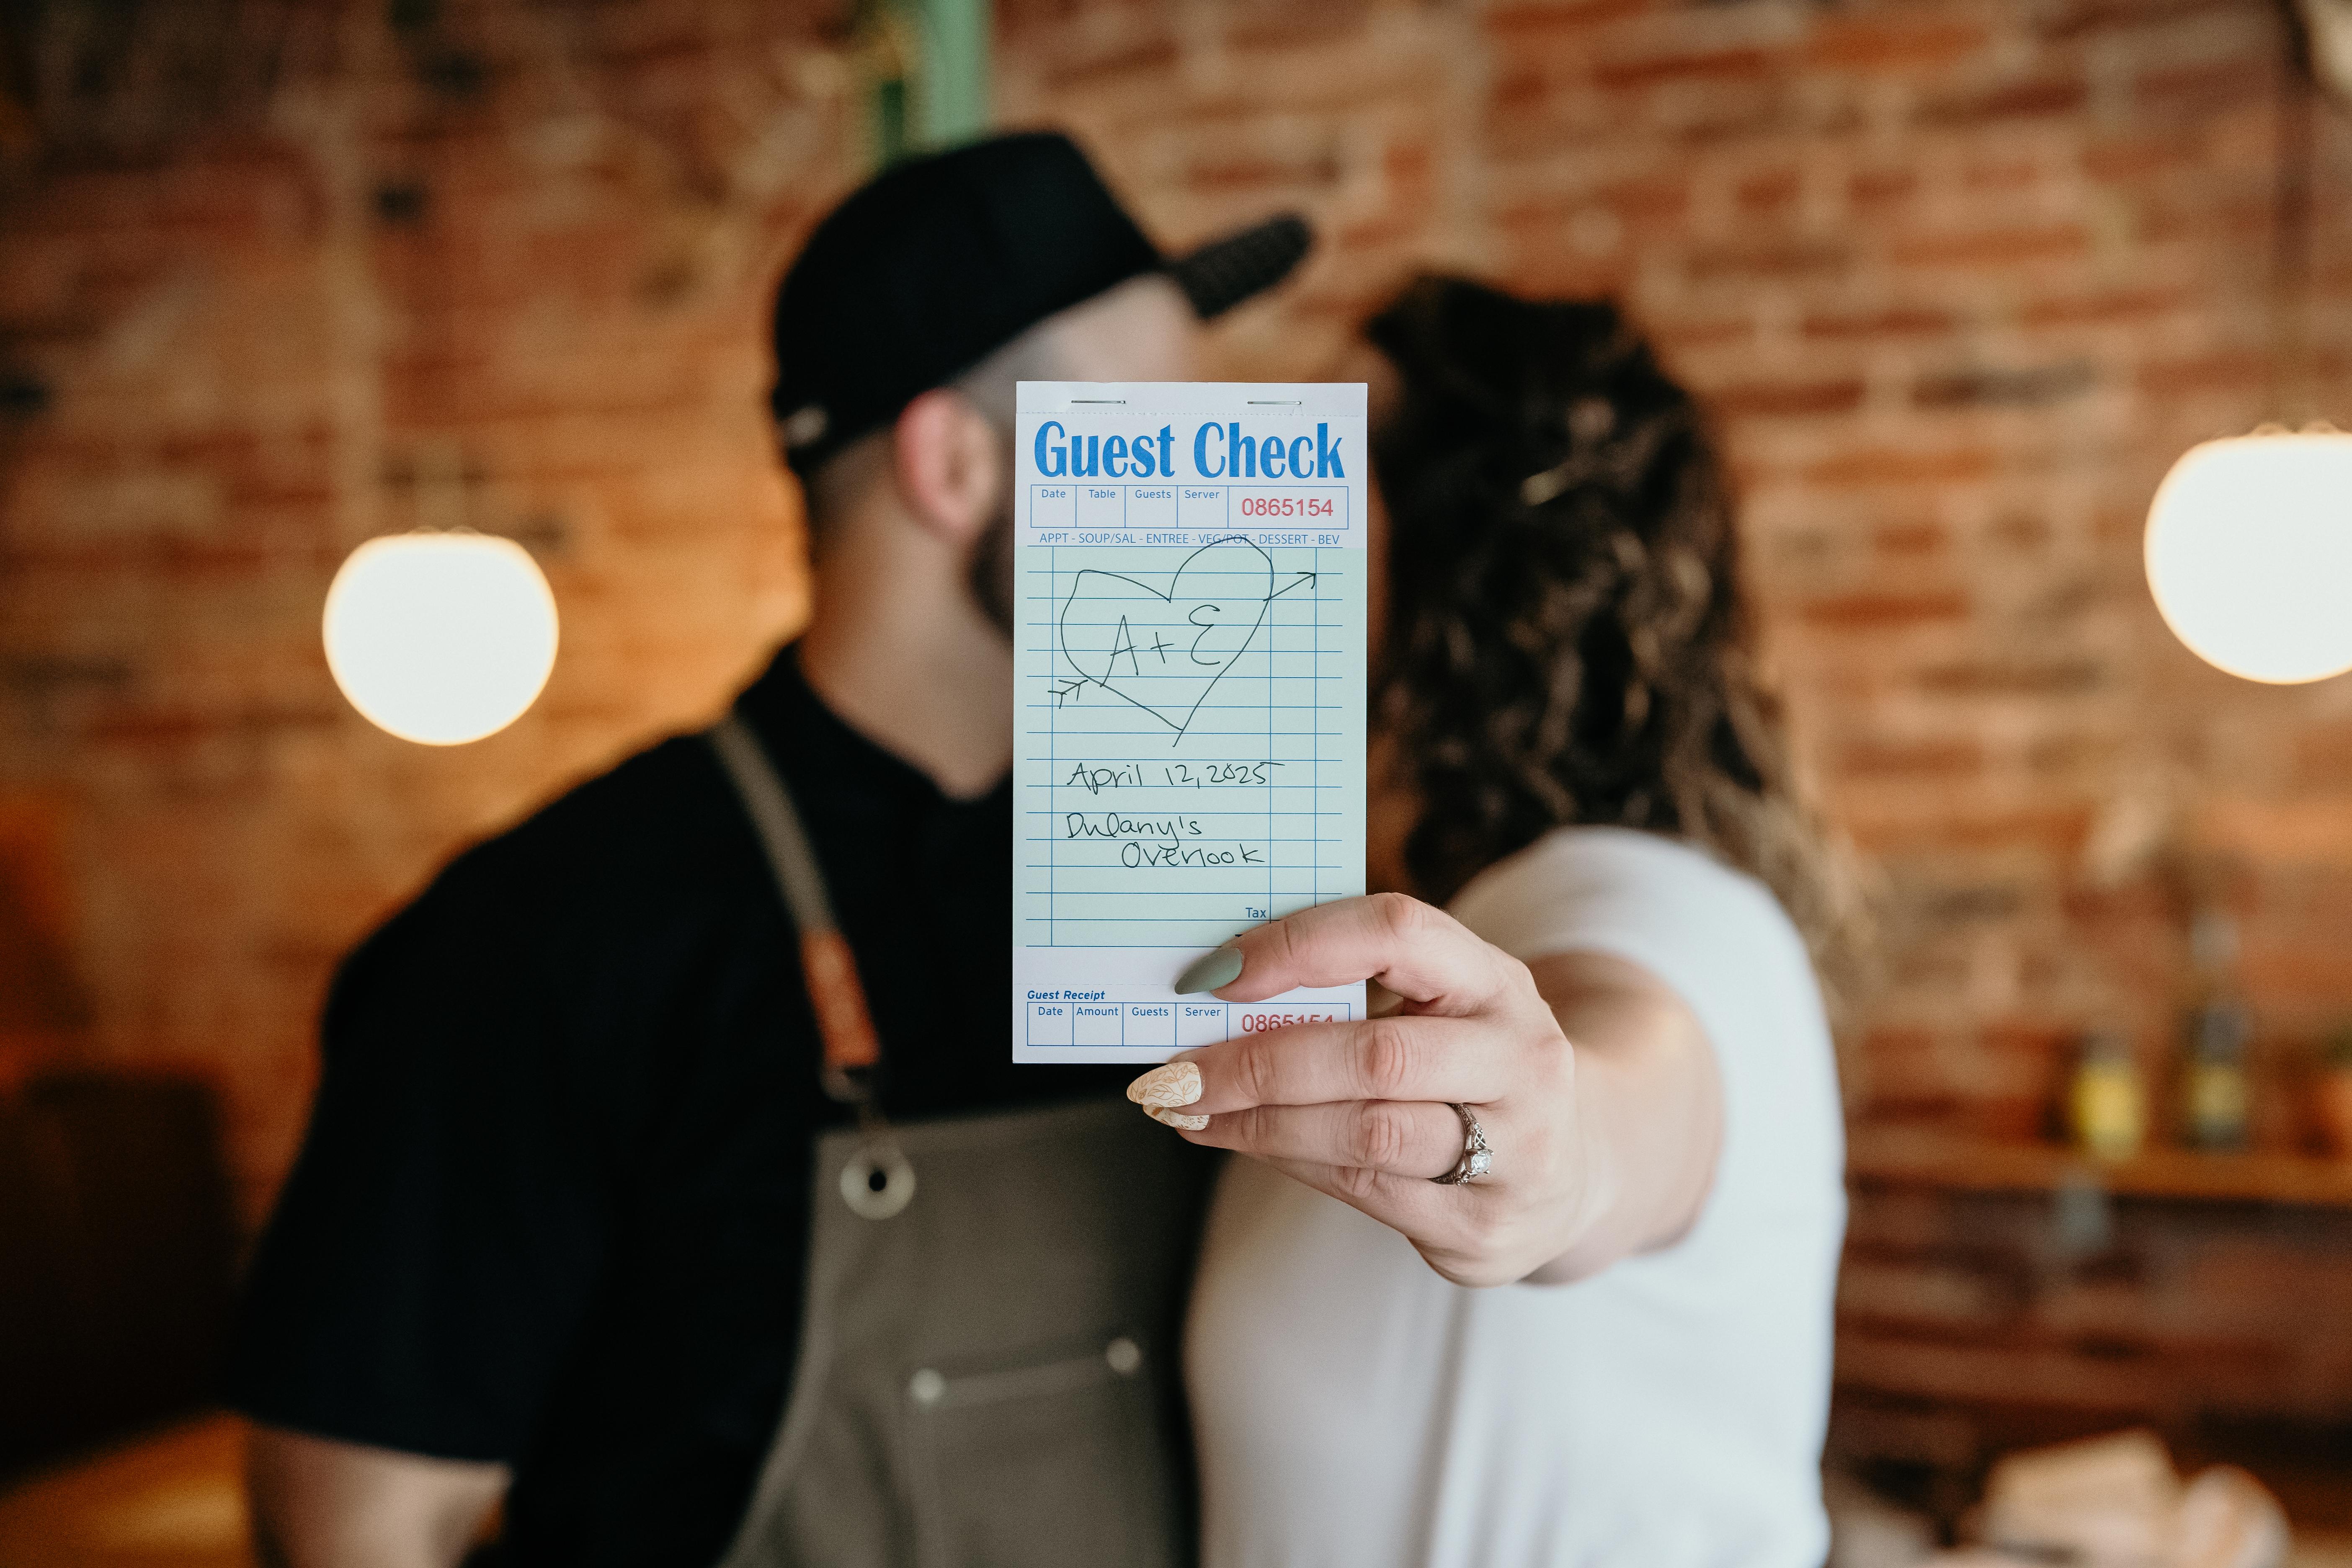 Guest Check
Date Table Guests Server 0865154
APPT - SOUP/SAL - ENTREE - VEG/POT - DESSERT - BEV
A + E
April 12, 2025
Dulany's
Overlook
Tax
Guest Receipt
Date Amount Guests Server 0865154